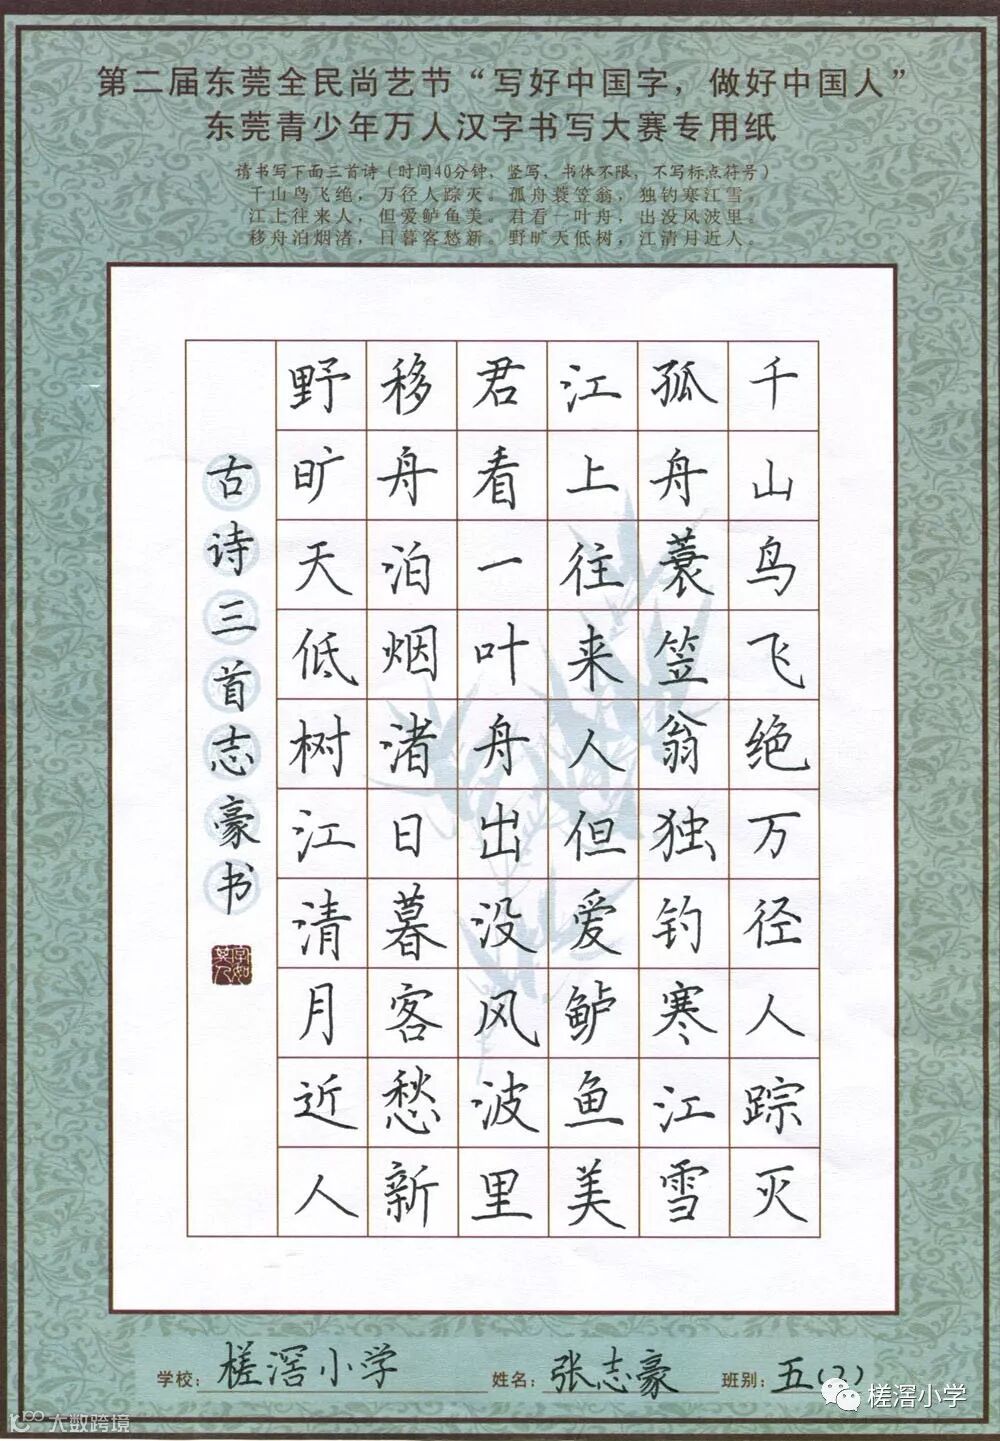 第二届东莞全民尚艺节“写好中国字，做好中国人”
东莞青少年万人汉字书写大赛专用纸
请书写下面三首诗（时间40分钟，竖写，书体不限，不写标点符号）
千山鸟飞绝，万径人踪灭。孤舟蓑笠翁，独钓寒江雪。
江上往来人，但爱鲈鱼美。君看一叶舟，出没风波里。
移舟泊烟渚，日暮客愁新。野旷天低树，江清月近人。
千山鸟飞绝万径人踪灭
孤舟蓑笠翁独钓寒江雪
江上往来人但爱鲈鱼美
君看一叶舟出没风波里
移舟泊烟渚日暮客愁新
野旷天低树江清月近人
古诗三首志豪书
字如其人
学校：槎滘小学 姓名：张志豪 班别：五
槎滘小学
大数跨境